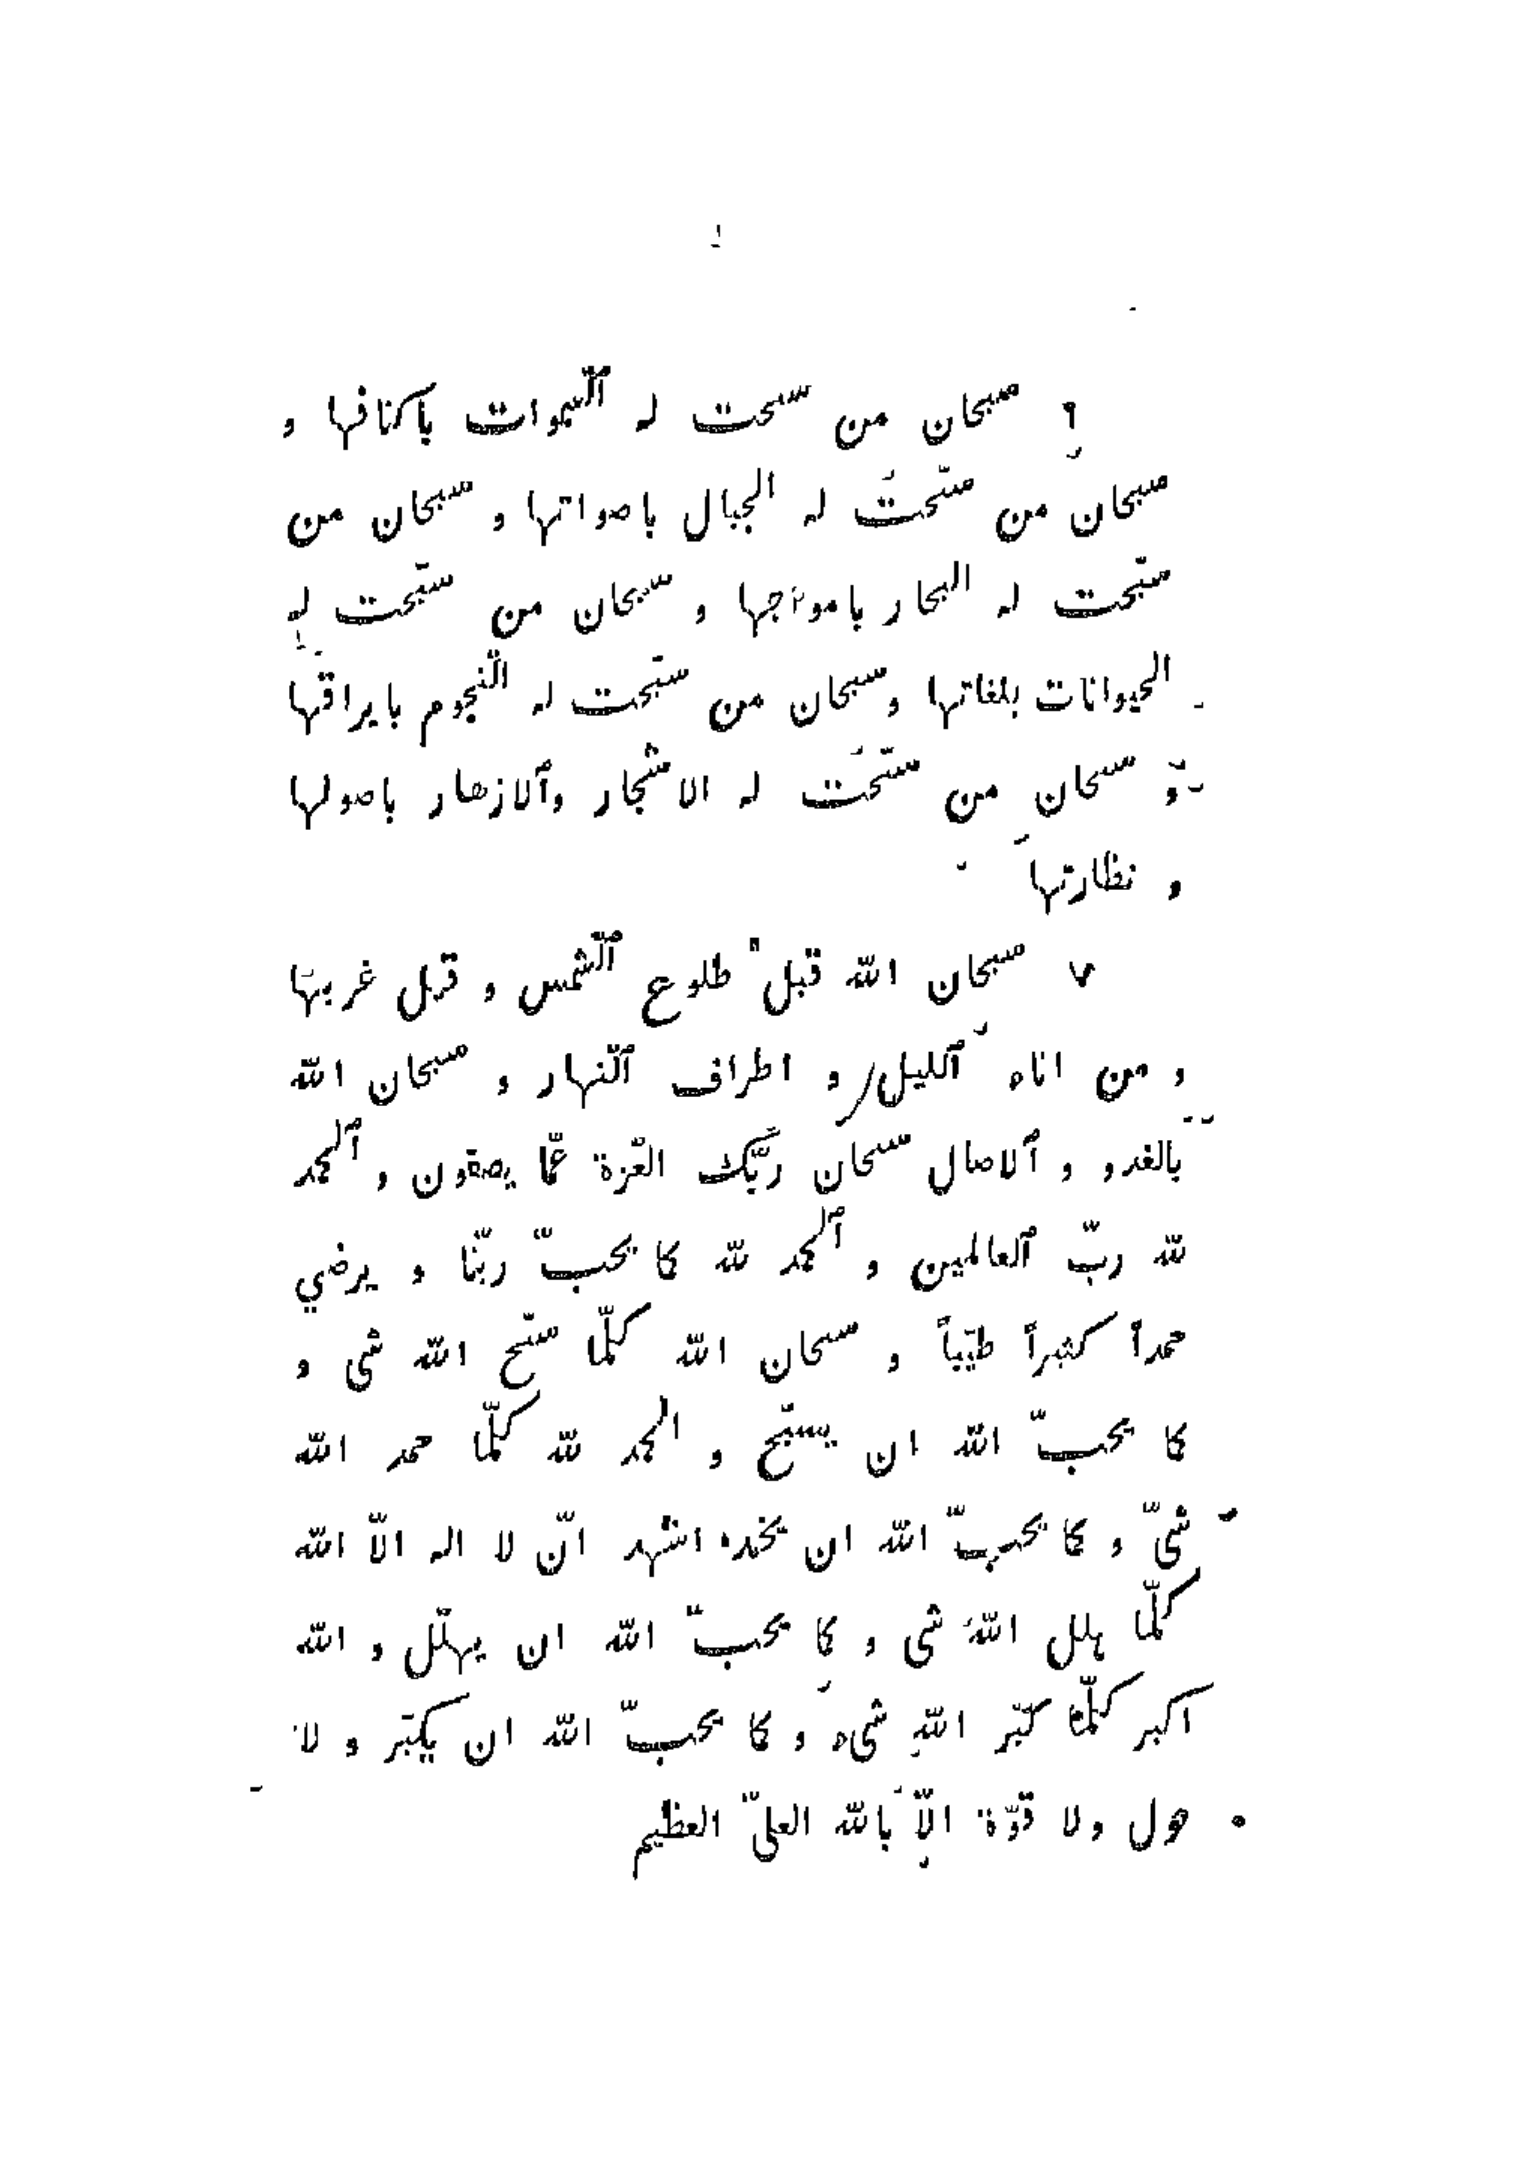 ٦ سبحان من سبحت له ٱلسّموات باكنافها و
سبحان من سبّحتَ له الجبال باصواتها و سبحان من
سبّحت له البحار بامواجها و سبحان من سبّحت له
الحيوانات بلغاتها وسبحان من سبّحت له النّجوم بايراقها
وّ سبحان من سبّحَت له الاشجار وٱلازهار باصولها
و نظارتها
٧ سبحان اللّه قبل طلوع ٱلشّمس و قبل غربها
و من اناه ٱلليل و اطراف ٱلنّهار و سبحان اللّه
بالغدو و ٱلاصال سبحان ربّك العّزة عمّا يصفون و ٱلحمد
للّه ربّ ٱلعالمين و ٱلحمد للّه كما يحبّ ربّنا و يرضي
حمداً كثيراً طيّباً و سبحان اللّه كلّما سبّح اللّه شى و
كما يحبّ اللّه ان يسبّح و الحمد للّه كلّما حمد اللّه
شىّ و كما يحبّ اللّه ان يحمده اشهد انّ لا اله الاّ اللّه
كلّما هلل اللّه شى و كما يحبّ اللّه ان يهلّل و اللّه
اكبر كلّما كبّر اللّه شىء و كما يحبّ اللّه ان يكبّر و لا
حول ولا قوّة الاّ باللّه العلىّ العظيم